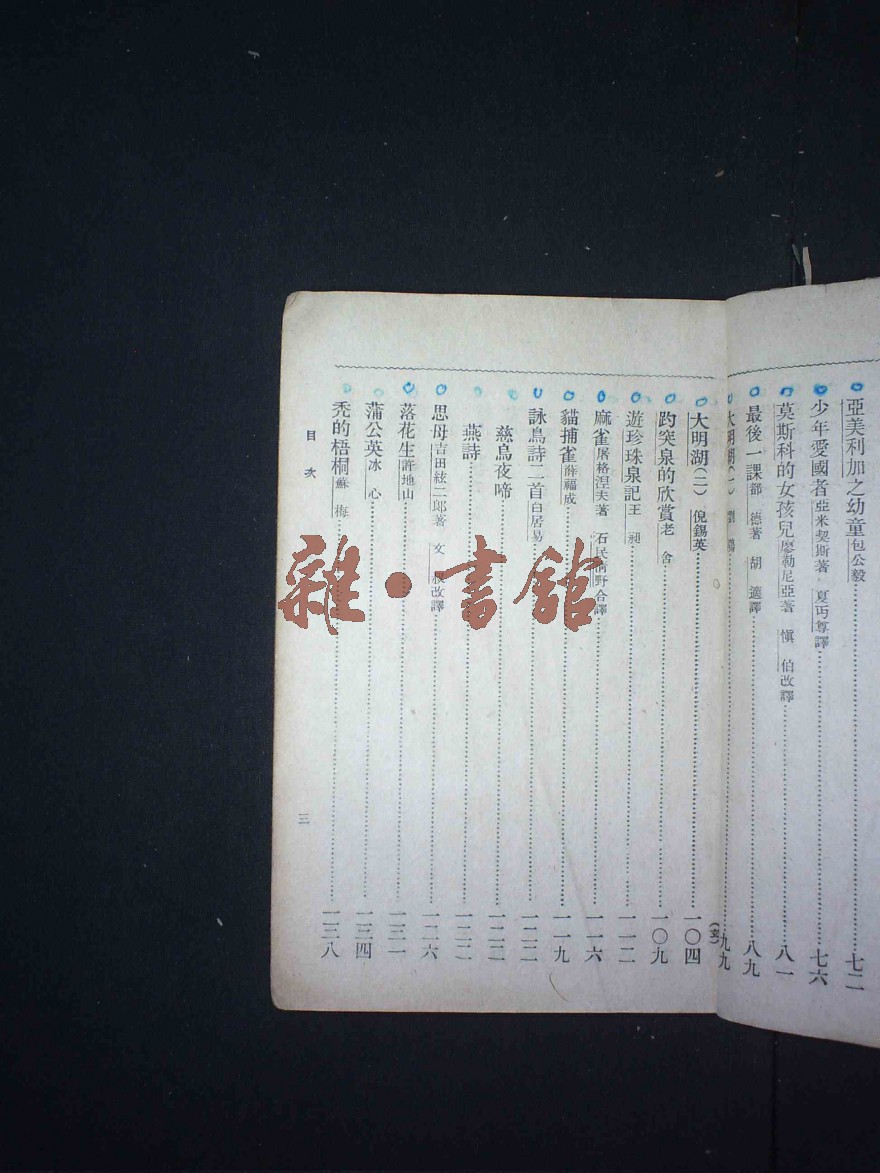 亞美利加之幼童 包公毅 七二
少年愛國者 亞米契斯著 夏丏尊譯 七六
莫斯科的女孩兒 廖勒尼亞著 愼伯改譯 八一
最後一課 都德著 胡適譯 八九
大明湖(一) 劉鶚 九九
大明湖(二) 倪錫英 一〇四
趵突泉的欣賞 老舍 一〇九
遊珍珠泉記 王昶 一一二
麻雀 屠格涅夫著 石民 野合譯 一一六
貓捕雀 薛福成 一一九
詠鳥詩二首 白居易 一二二
慈烏夜啼 一二二
燕詩 一二二
思母 吉田絃二郎著 文 改譯 一二六
落花生 許地山 一三一
蒲公英 冰心 一三四
禿的梧桐 蘇梅 一三八
目次
三
雜·書館